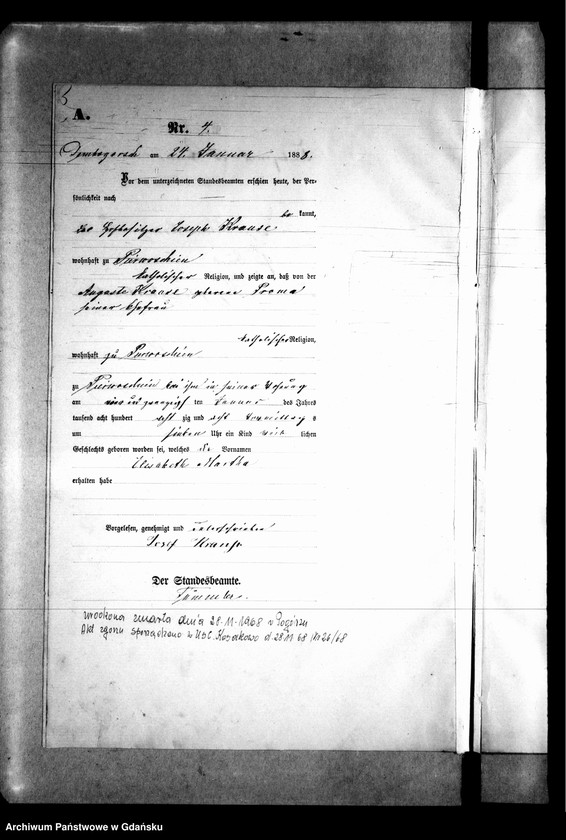 A.
Nr. 4.
am 24. Januar 1888.
Vor dem unterzeichneten Standesbeamten erschien heute, der Per-
sönlichkeit nach
be kannt,
Joseph Krause
wohnhaft zu Pierwoschin
katholischer Religion, und zeigte an, daß von der
Auguste Krause geborene
seiner Ehefrau
katholischer Religion,
wohnhaft zu Pierwoschin
zu Pierwoschin in seiner Wohnung
am ein und zwanzigsten Januar des Jahres
tausend acht hundert acht zig und acht Vormittags
um sieben Uhr ein Kind weib lichen
Geschlechts geboren worden sei, welches die Vornamen
Elisabeth Martha
erhalten habe
Vorgelesen, genehmigt und unterschrieben
Josef Krause
Der Standesbeamte.
zmarła dnia 28.11.1968 w Pogórzu
Akt zgonu sporządzono w USC. Kosakowo d. 28.11.68 Nr 26/68
Archiwum Państwowe w Gdańsku